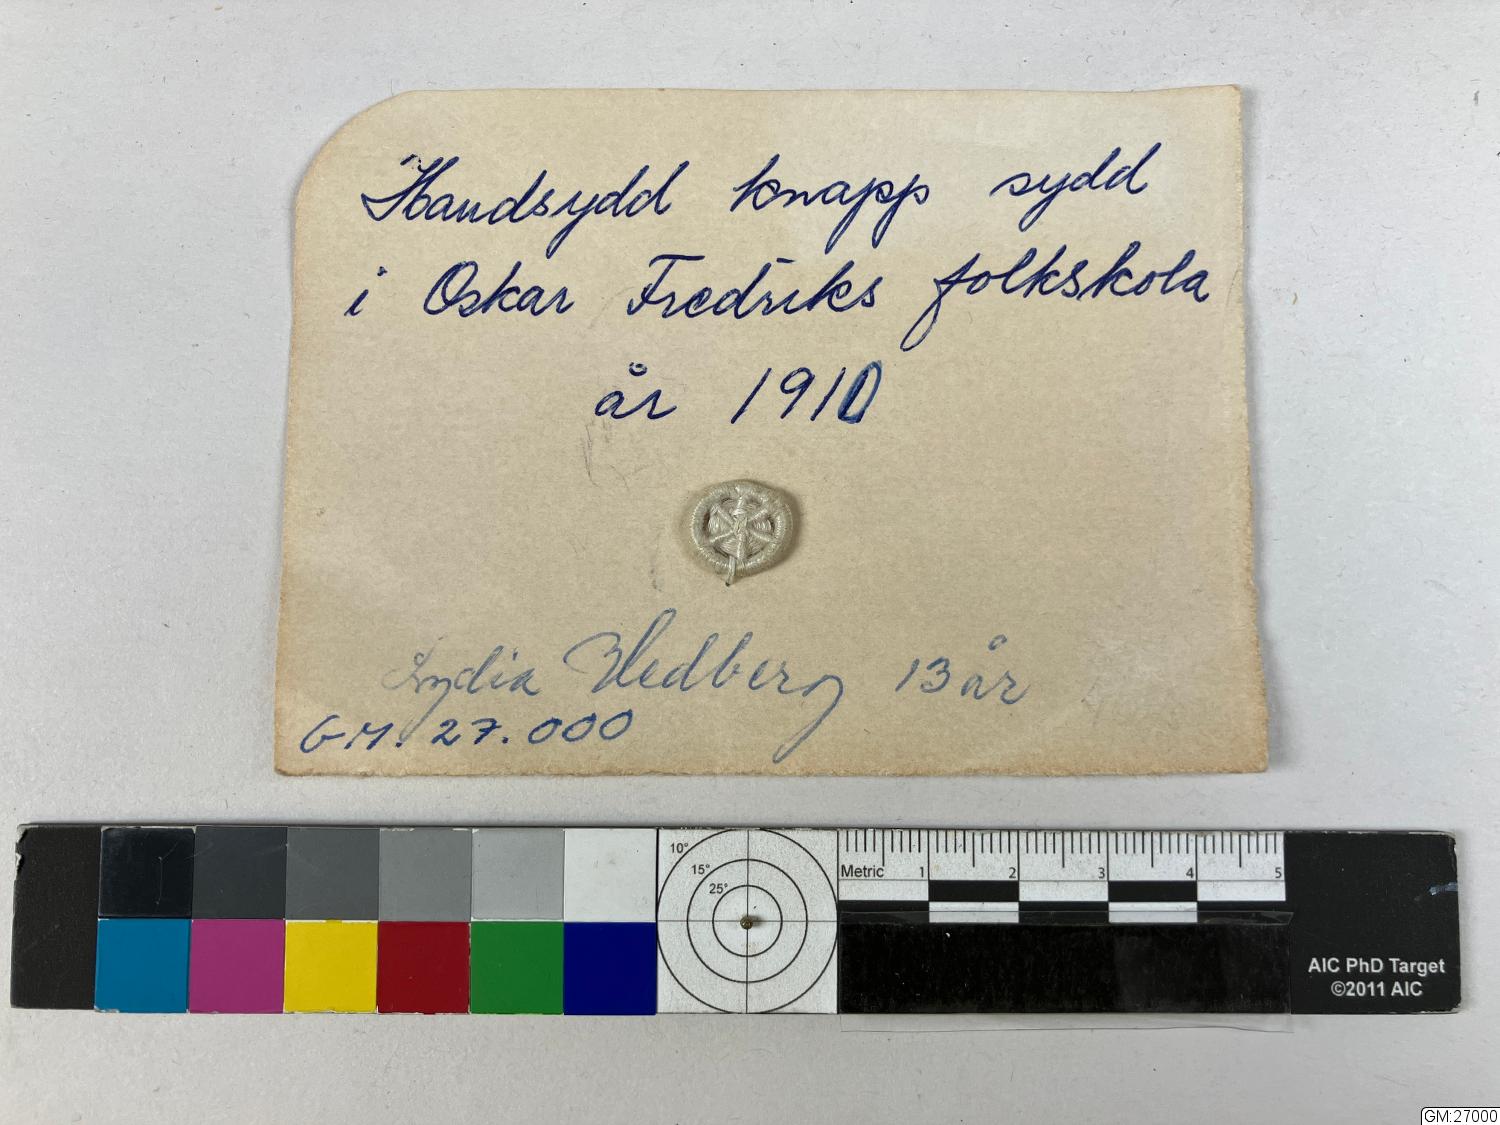 Handsydd knapp sydd
i Oskar Fredriks folkskola
år 1910
Lydia Hedberg 13 år
GM. 27.000
10°
15°
25°
Metric 1 2 3 4 5
AIC PhD Target
©2011 AIC
GM:27000